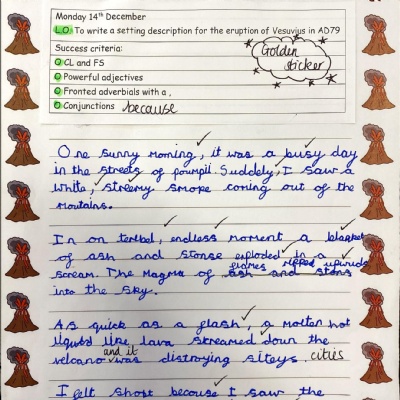 Monday 14th December
L.O. To write a setting description for the eruption of Vesuvius in AD79
Success criteria:
CL and FS
Powerful adjectives
Fronted adverbials with a ,
Conjunctions because
Golden
sticker
One sunny morning, it was a busy day
in the streets of pompii. Suddely, I saw a
white, streemy smoke coming out of the
moutains.
In on teribel, endless moment a blanket
of ash and stonse exploded in a
flames ripped upwards
scream. The magma of ash and stons
into the sky.
As quick as a flash, a molton hot
liquid like lava streamed down the
and it
velcano was distroying siteys. cities
I felt shost because I saw the